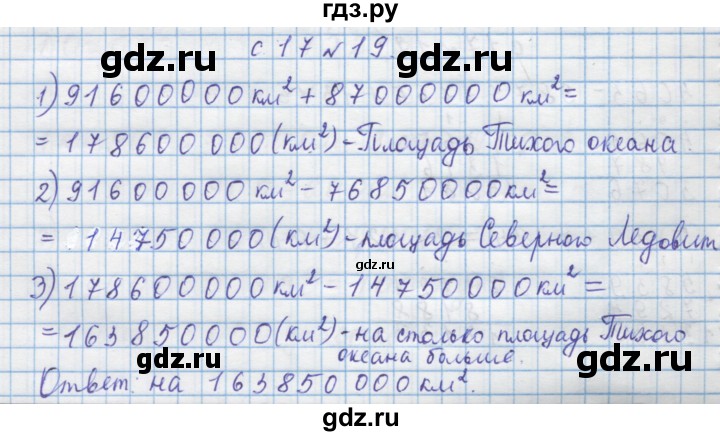 гдз.ру
gdz.ru gdz.ru
с 17 № 19.
1) 91600000 км² + 87000000 км² =
= 178600000 (км²) - Площадь Тихого океана
gdz.ru gdz.ru
2) 91600000 км² - 76850000 км² =
= 14750000 (км²) - площадь Северного Ледовит
gdz.ru
3) 178600000 км² - 14750000 км² =
gdz.ru gdz.ru
= 163850000 (км²) - на столько площадь Тихого
океана больше.
Ответ: на 163850000 км².
gdz.ru gdz.ru
gdz.ru